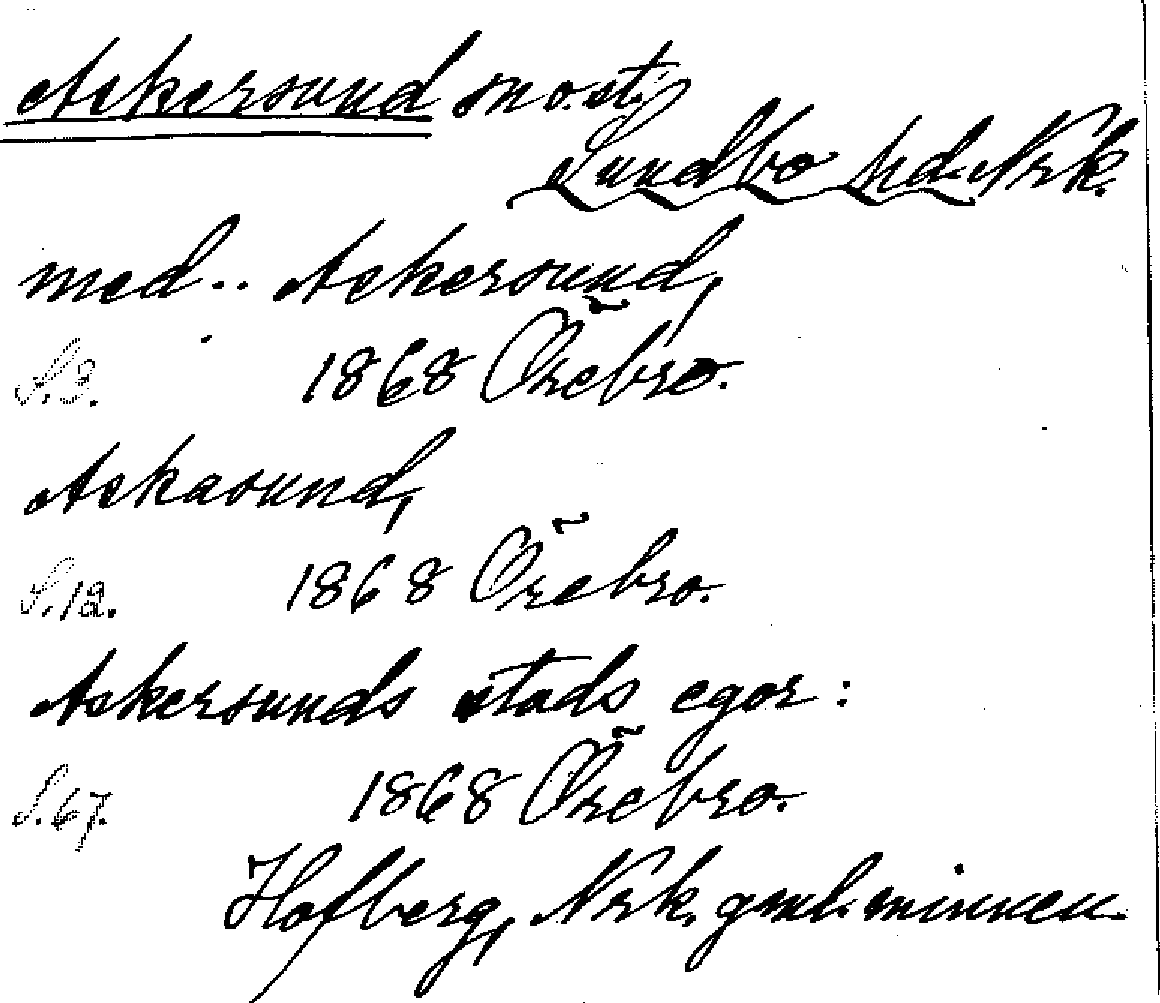 Askersund sn o. st.,
Sundbo hd. Nrk.
med .. Askersund,
S. 3. 1868 Örebro.
Askasund,
S. 12. 1868 Örebro.
Askersunds stads egor:
S. 67. 1868 Örebro.
Hofberg, Nrk. gml. minnen.